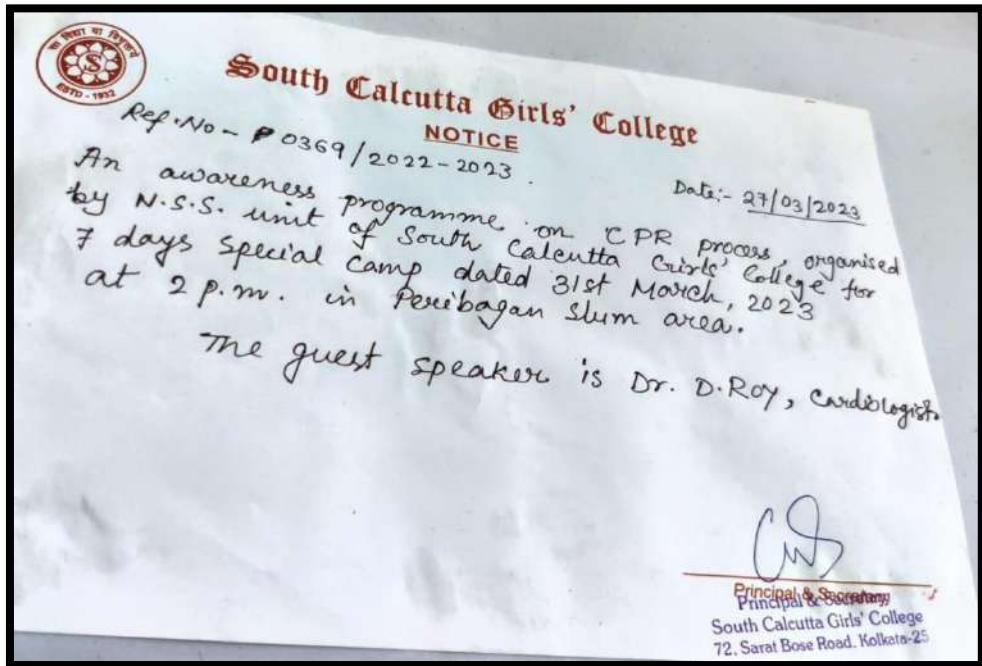 सा विद्या या विमुक्तये
S
ESTD - 1932
South Calcutta Girls' College
NOTICE
Ref. No - P 0369/2022-2023.
Date:- 27/03/2023
An awareness programme on CPR process, organised
by N.S.S. unit of South Calcutta Girls' College for
7 days special camp dated 31st March, 2023
at 2 p.m. in Peribagan slum area.
The guest speaker is Dr. D. ROY, Cardiologist.
Principal & Secretary
Principal & Secretary
South Calcutta Girls' College
72, Sarat Bose Road, Kolkata-25